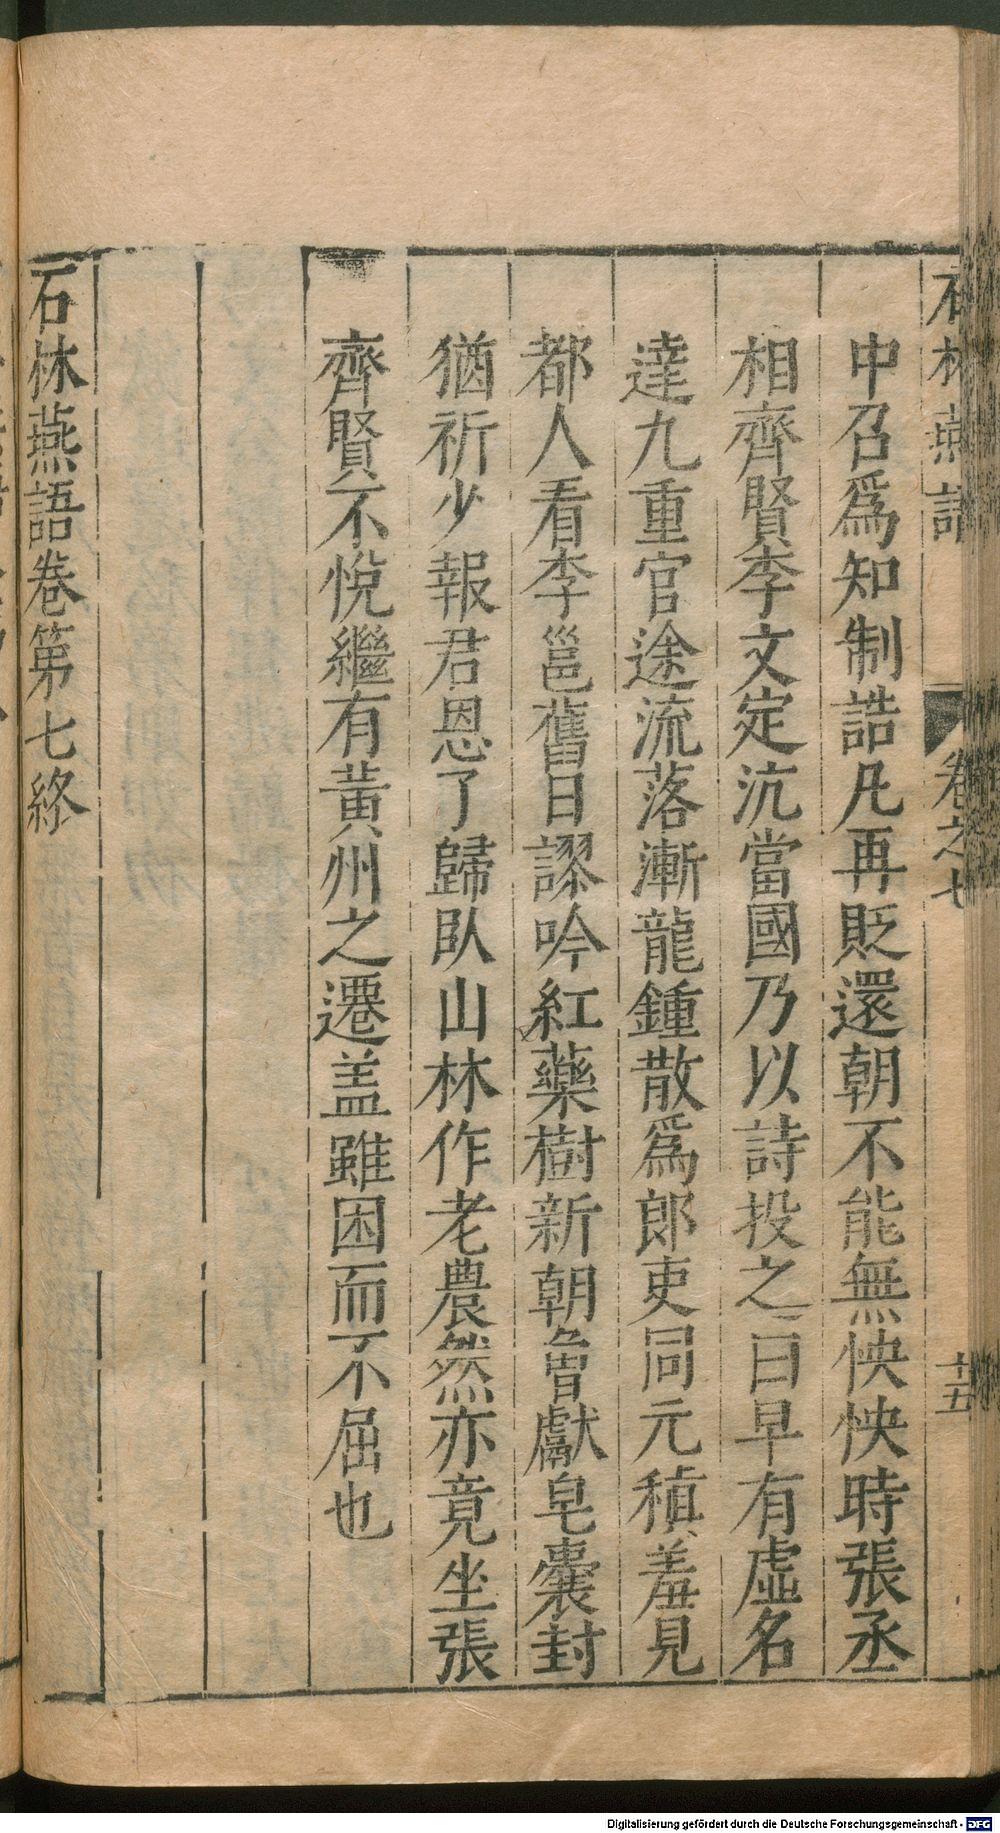 石林燕語
卷之七
十五
中召爲知制誥凡再貶還朝不能無怏怏時張丞
相齊賢李文定沆當國乃以詩投之曰早有虛名
達九重官途流落漸龍鍾散爲郎吏同元稹羞見
都人看李邕舊日謬吟紅藥樹新朝曾獻皂囊封
猶祈少報君恩了歸臥山林作老農然亦竟坐張
齊賢不悅繼有黃州之遷盖雖困而不屈也
石林燕語卷第七終
Digitalisierung gefördert durch die Deutsche Forschungsgemeinschaft - DFG